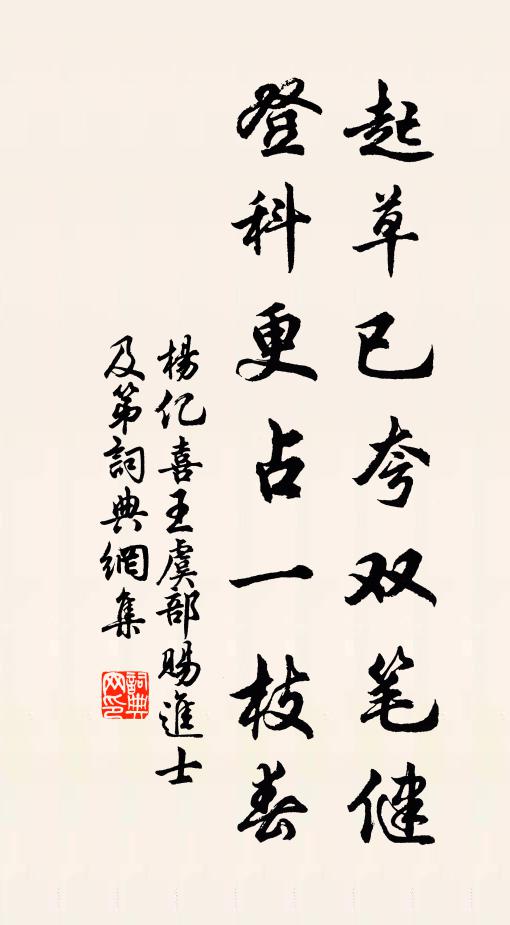 起草已夸双笔健
登科更占一枝春
楊亿喜王虞部賜進士
及第詞典網集
詞典
网印